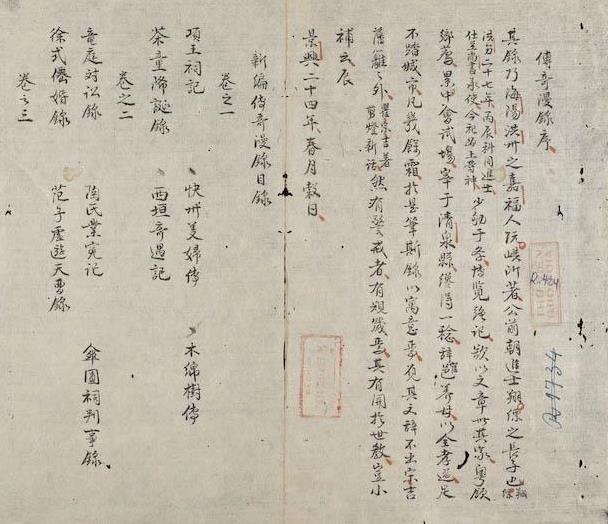 傳奇漫錄序
其錄乃海陽洪州之嘉福人阮嶼所著公前朝進士翔縹之長子也翔縹
洪德二十七年丙辰科同進士仕至尚書承使今祀為上等神少劬于学博覽強記欲以文章世其家粵領
鄉薦累中會試場宰于清泉縣纔得一稔辞邑養母以全孝道足
不踏城市凡幾餘霜於是筆斯錄以寓意焉観其文辞不出宗吉
藩籬之外瞿宗吉著剪燈新話然有警戒者有規箴焉其有関於世教豈小
補云辰
景興二十四年春月穀日
新編傳奇漫錄目錄
卷之一
項王祠記 快州義婦傳 木綿樹傳
茶童降誕錄 西垣奇遇記
卷之二
竜庭対訟錄 陶氏業冤記 傘圓祠判事錄
徐式僊婚錄 范子虛遊天曹錄
卷之三
R.424
A.1734